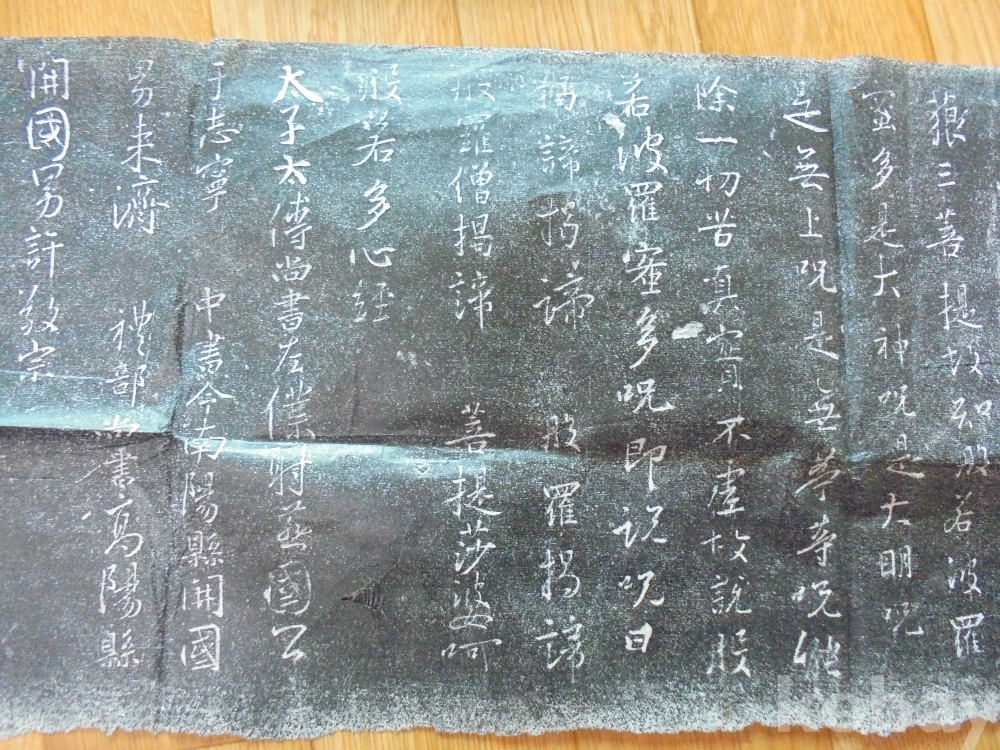 藐三菩提故知般若波羅
蜜多是大神咒是大明咒
是無上咒是無等等咒能
除一切苦真實不虛故說般
若波羅蜜多咒即說咒曰
揭諦揭諦 般羅揭諦
般羅僧揭諦 菩提莎婆呵
般若多心経
太子太傅尚書左僕射燕國公
于志寧 中書令南陽縣開國
男来濟 禮部尚書高陽縣
開國男許敬宗
kobay